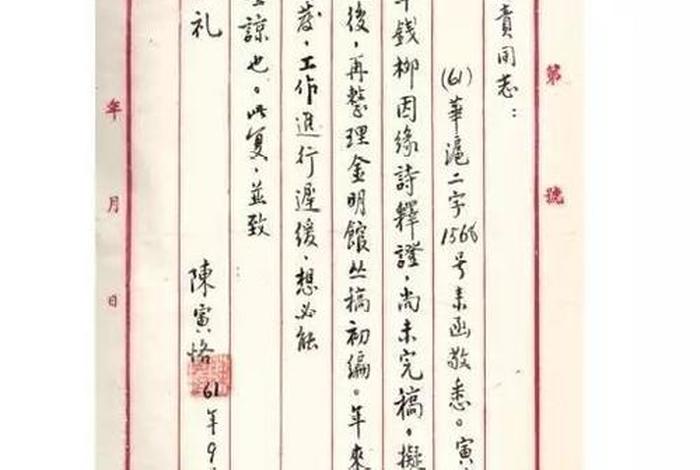 第 號
責同志：
(61)華滬二字1566号来函敬悉。寅
錢柳因缘詩釋證，尚未完稿，擬
後，再整理金明館丛稿初編。年來
工作進行遲缓，想必能
諒也。此复，並致
礼
陳寅恪 61年9
年 月 日